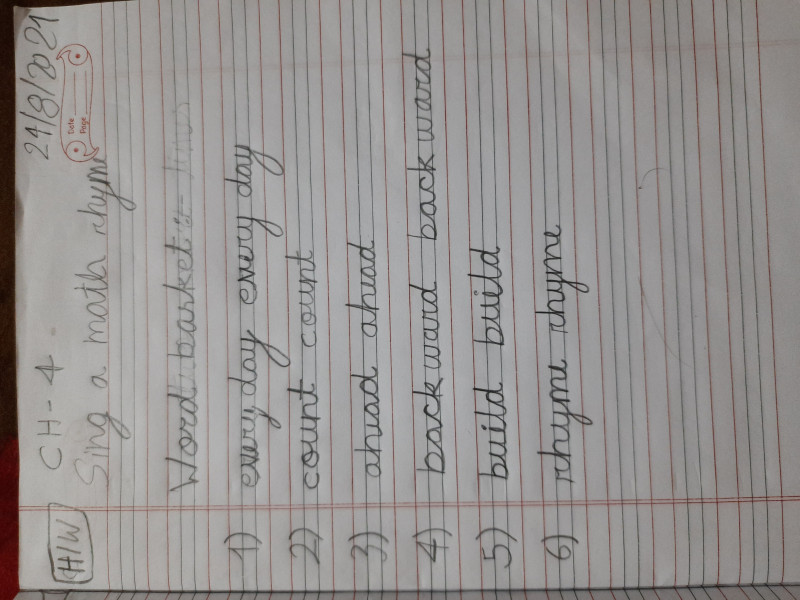 24/8/2021
H/W CH-4.
Date
Page
Sing a math rhyme
Word basket
1) every day every day
2) count count
3) ahead ahead
4) backward backward
5) build build
6) rhyme rhyme